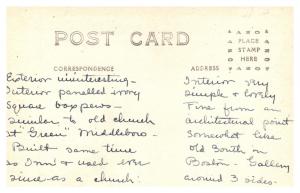 POST CARD
AZO AZO
PLACE
STAMP
HERE
AZO AZO
CORRESPONDENCE
ADDRESS
Exterior uninteresting-
Interior panelled ivory
Square box pews-
similar to old church
at "Green" Middleboro-
Built same time
as Inn & used ever
since as a church.
Interior very
simple & lovely
Fine from an
architectural point
Somewhat like
old South in
Boston- Gallery
around 3 sides-